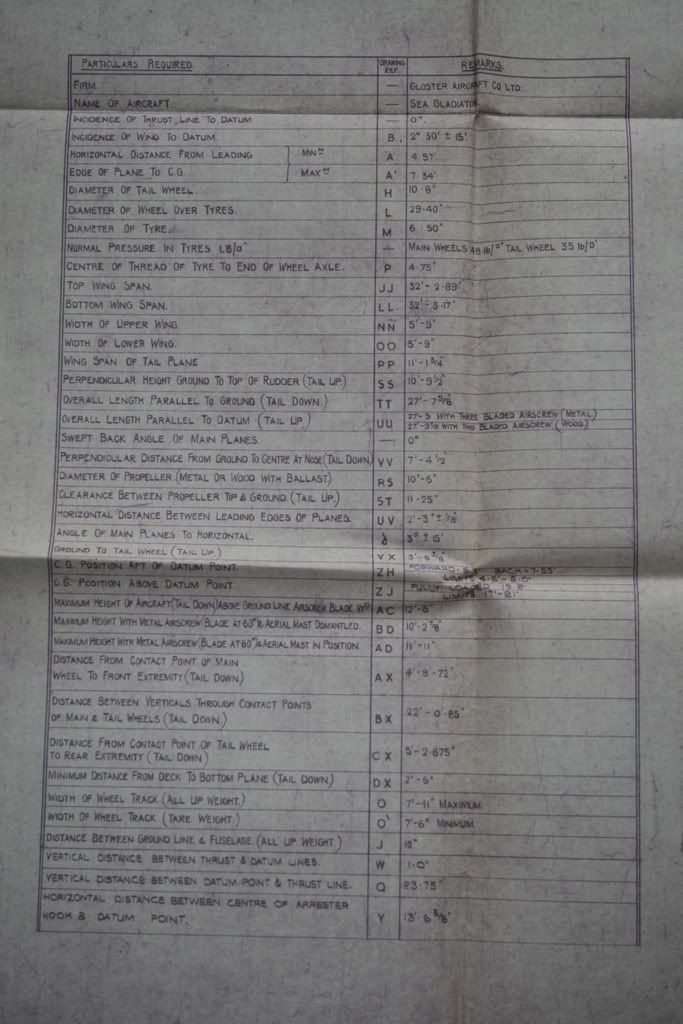 PARTICULARS REQUIRED. DRAWING REF. REMARKS.
FIRM. — GLOSTER AIRCRAFT CO LTD.
NAME OF AIRCRAFT. — SEA GLADIATOR
INCIDENCE OF THRUST LINE TO DATUM — 0°.
INCIDENCE OF WING TO DATUM. B. 2° 30' ± 15'
HORIZONTAL DISTANCE FROM LEADING MINM A 4.97"
EDGE OF PLANE TO C.G. MAXM A' 7.34"
DIAMETER OF TAIL WHEEL. H 10.8"
DIAMETER OF WHEEL OVER TYRES. L 29.40"
DIAMETER OF TYRE. M 6.50"
NORMAL PRESSURE IN TYRES LB/□" — MAIN WHEELS 48 lb/□" TAIL WHEEL 35 lb/□"
CENTRE OF THREAD OF TYRE TO END OF WHEEL AXLE. P 4.75"
TOP WING SPAN. JJ 32'- 2.89"
BOTTOM WING SPAN. LL. 32'- 3.17"
WIDTH OF UPPER WING. NN 5'-9"
WIDTH OF LOWER WING. OO 5'-9"
WING SPAN OF TAIL PLANE PP 11'-1 3/4"
PERPENDICULAR HEIGHT GROUND TO TOP OF RUDDER (TAIL UP.) SS 10'-9 1/2"
OVERALL LENGTH PARALLEL TO GROUND (TAIL DOWN.) TT 27'- 7 5/8"
OVERALL LENGTH PARALLEL TO DATUM (TAIL UP.) UU 27'-5 WITH THREE BLADED AIRSCREW (METAL.)
27'-9 3/8 WITH TWO BLADED AIRSCREW (WOOD.)
SWEPT BACK ANGLE OF MAIN PLANES. — 0°
PERPENDICULAR DISTANCE FROM GROUND TO CENTRE AT NOSE (TAIL DOWN) VV 7'-4 1/2"
DIAMETER OF PROPELLER. (METAL OR WOOD WITH BALLAST.) RS 10'-6"
CLEARANCE BETWEEN PROPELLER TIP & GROUND (TAIL UP.) ST 11.25"
HORIZONTAL DISTANCE BETWEEN LEADING EDGES OF PLANES. UV 2'-3" ± 1/8"
ANGLE OF MAIN PLANES TO HORIZONTAL. 3° ± 15'
GROUND TO TAIL WHEEL (TAIL UP.) VX
C.G. POSITION AFT OF DATUM POINT. ZH FORWARD BACK + 7.55"
LIMITS 4.5"- 8.0"
C.G. POSITION ABOVE DATUM POINT. ZJ FULLY LOADED
LIMITS 17"-21"
MAXIMUM HEIGHT OF AIRCRAFT (TAIL DOWN) ABOVE GROUND LINE AIRSCREW BLADE AC 12'-6"
MAXIMUM HEIGHT WITH METAL AIRSCREW (BLADE AT 60°) & AERIAL MAST DISMANTLED. BD 10'-2 7/8"
MAXIMUM HEIGHT WITH METAL AIRSCREW (BLADE AT 60°) & AERIAL MAST IN POSITION. AD 11'-11"
DISTANCE FROM CONTACT POINT OF MAIN
WHEEL TO FRONT EXTREMITY (TAIL DOWN) AX 4'-8.72"
DISTANCE BETWEEN VERTICALS THROUGH CONTACT POINTS
OF MAIN & TAIL WHEELS (TAIL DOWN.) BX 22'-0.85"
DISTANCE FROM CONTACT POINT OF TAIL WHEEL
TO REAR EXTREMITY (TAIL DOWN) CX 5'-2.875"
MINIMUM DISTANCE FROM DECK TO BOTTOM PLANE (TAIL DOWN.) DX 2'-6"
WIDTH OF WHEEL TRACK (ALL UP WEIGHT.) O 7'-11" MAXIMUM.
WIDTH OF WHEEL TRACK (TARE WEIGHT.) O' 7'-6" MINIMUM.
DISTANCE BETWEEN GROUND LINE & FUSELAGE (ALL UP WEIGHT.) J 10"
VERTICAL DISTANCE BETWEEN THRUST & DATUM LINES. W 1.0"
VERTICAL DISTANCE BETWEEN DATUM POINT & THRUST LINE. Q 23.75"
HORIZONTAL DISTANCE BETWEEN CENTRE OF ARRESTER
HOOK & DATUM POINT. Y 13'.6 3/8"